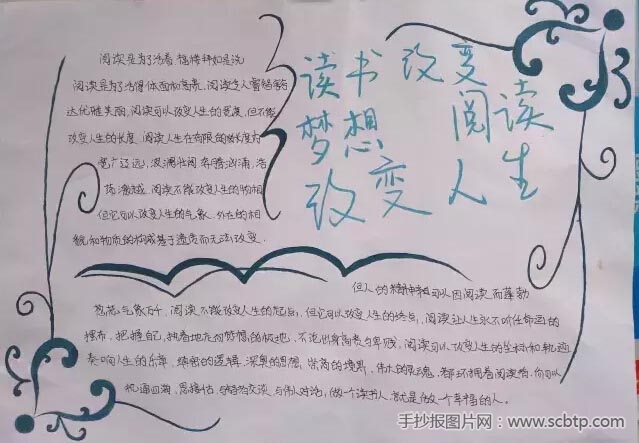 读书 改变
梦想 阅读
改变人生
阅读是为了活着 福楼拜如是说
阅读是为了活得体面和高贵,阅读使人睿智豁
达优雅美丽,阅读可以改变人生的宽度,但不能
改变人生的长度,阅读人生在有限的长度内
宽广辽远,波澜壮阔 奔腾汹涌,浩
荡 阅读不能改变人生的物相
但它可以改变人生的气象,外在的相
貌和物质的构成基于遗传而无法改变,
但人的精神 可以因阅读而蓬勃
葱茏气象万千,阅读不能改变人生的起点,但它可以改变人生的终点,阅读让人生永不听任命运的
摆布,把握自己,执着地走向梦想的极地,不论出身高贵与卑贱,阅读可以改变人生的坐标和轨迹
奏响人生的乐章,缜密的逻辑,深奥的思想,崇高的境界,伟大的灵魂,都环拥着阅读者,你可以
视通四海,思接千古,与智者交谈,与伟人对话,做一个读书人,就是做一个幸福的人。
手抄报图片网:www.scbtp.com